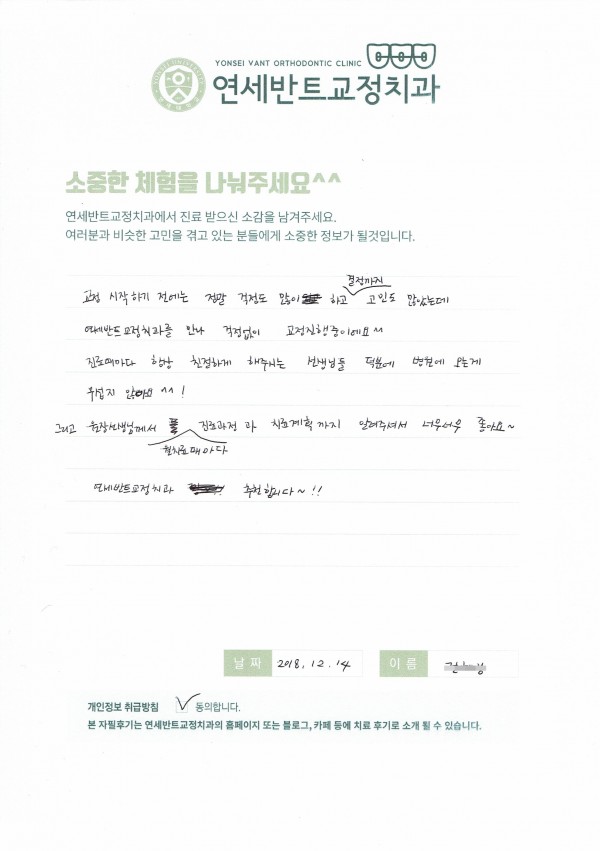 YONSEI VANT ORTHODONTIC CLINIC
연세반트교정치과
소중한 체험을 나눠주세요^^
연세반트교정치과에서 진료 받으신 소감을 남겨주세요.
여러분과 비슷한 고민을 겪고 있는 분들에게 소중한 정보가 될것입니다.
결정까지
교정 시작하기 전에는 정말 걱정도 많이 하고 고민도 많았는데
연세반트교정치과를 만나 걱정없이 교정진행중이에요~
진료때마다 항상 친절하게 해주시는 선생님들 덕분에 병원에 오는게
무섭지 않아요 ^^ !
그리고 원장선생님께서 진료과정과 치료계획까지 알려주셔서 너무너무 좋아요~
매치료때마다
연세반트교정치과 추천합니다~!!
날짜 2018. 12. 14 이름
개인정보 취급방침 동의합니다.
본 자필후기는 연세반트교정치과의 홈페이지 또는 블로그, 카페 등에 치료 후기로 소개 될 수 있습니다.